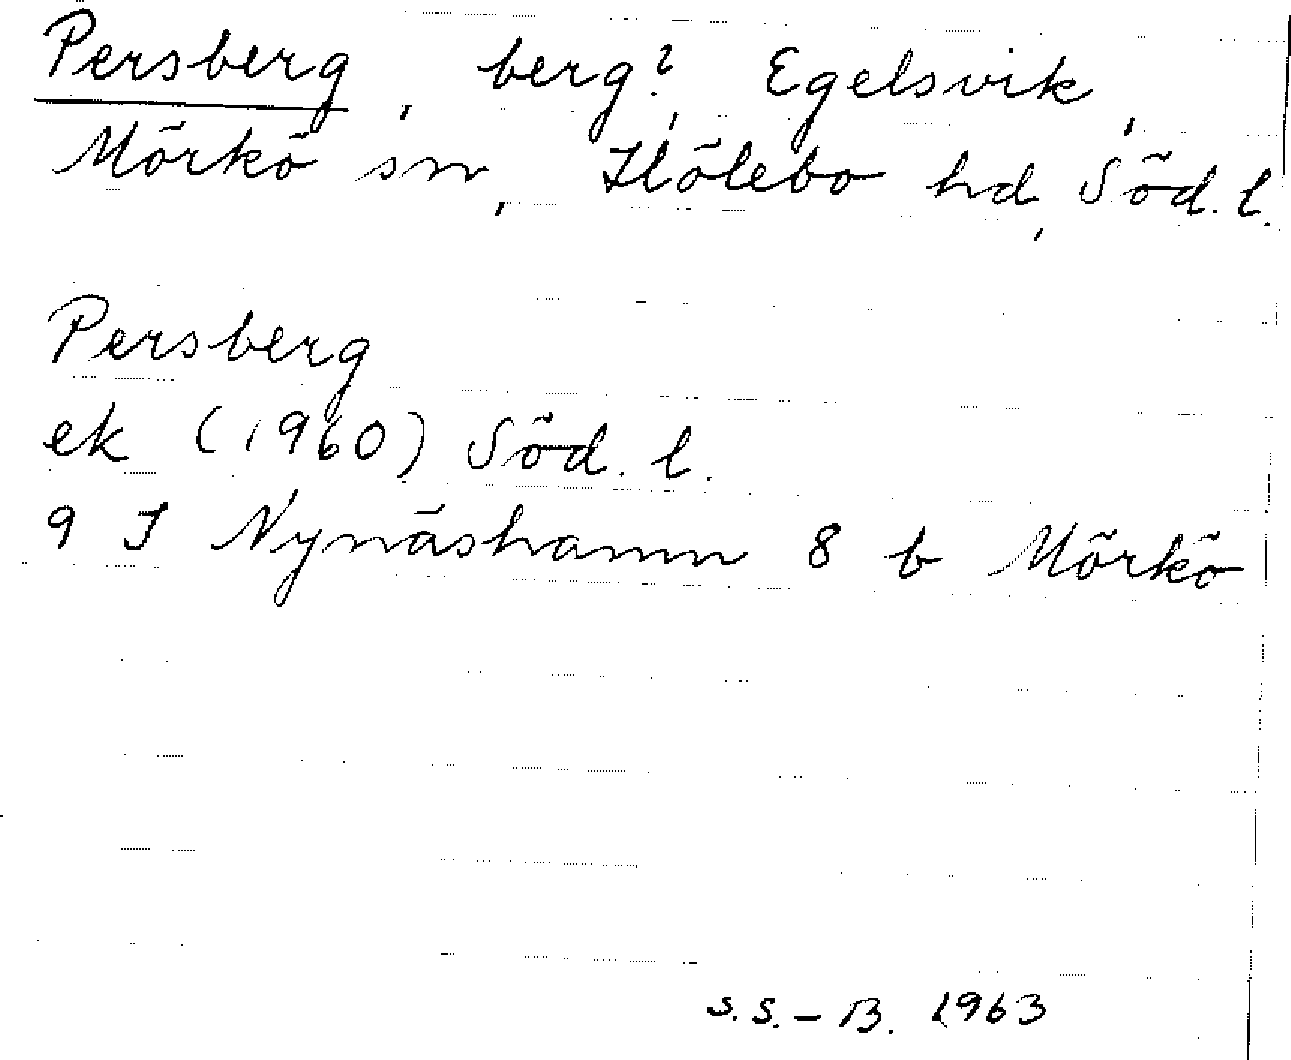 Persberg, berg?, Egelsvik,
Mörkö sn, Hölebo hd, Söd. l.
Persberg
ek (1960) Söd. l.
9 I Nynäshamn 8 b Mörkö
S.S.-B. 1963